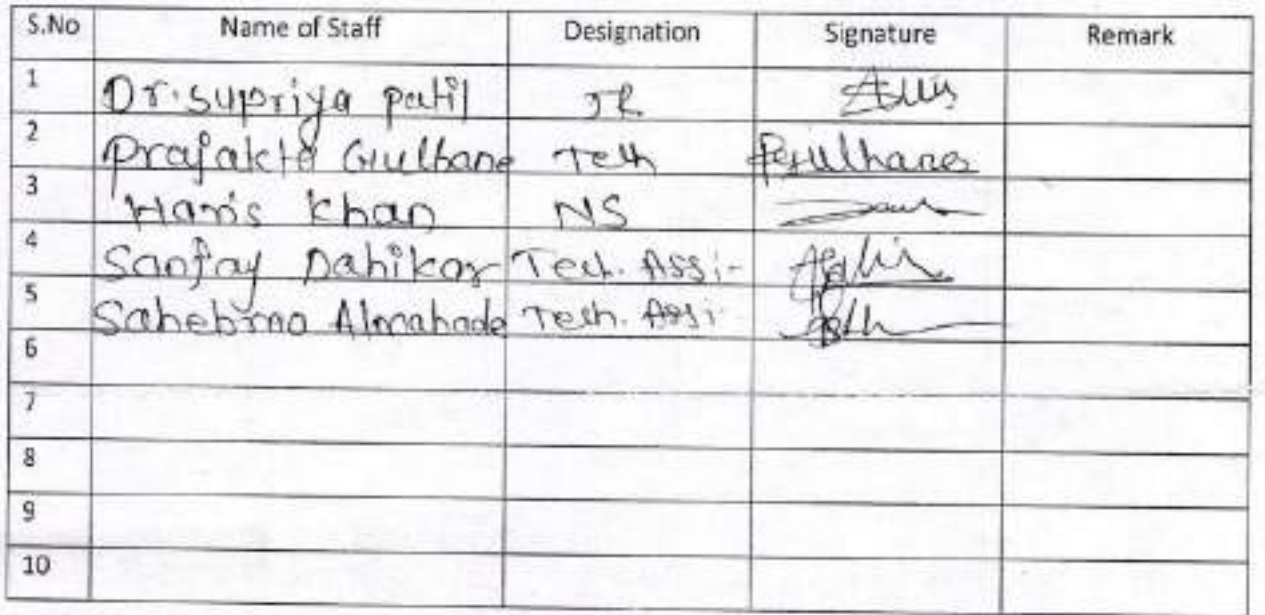 S.No Name of Staff Designation Signature Remark
1 Dr. Supriya Patil JR
2 Prajakta Gulhane Tech Pgulhane
3 Haris Khan NS
4 Sanjay Dahikar Tech. Assi-
5 Tech. Assi-
6
7
8
9
10